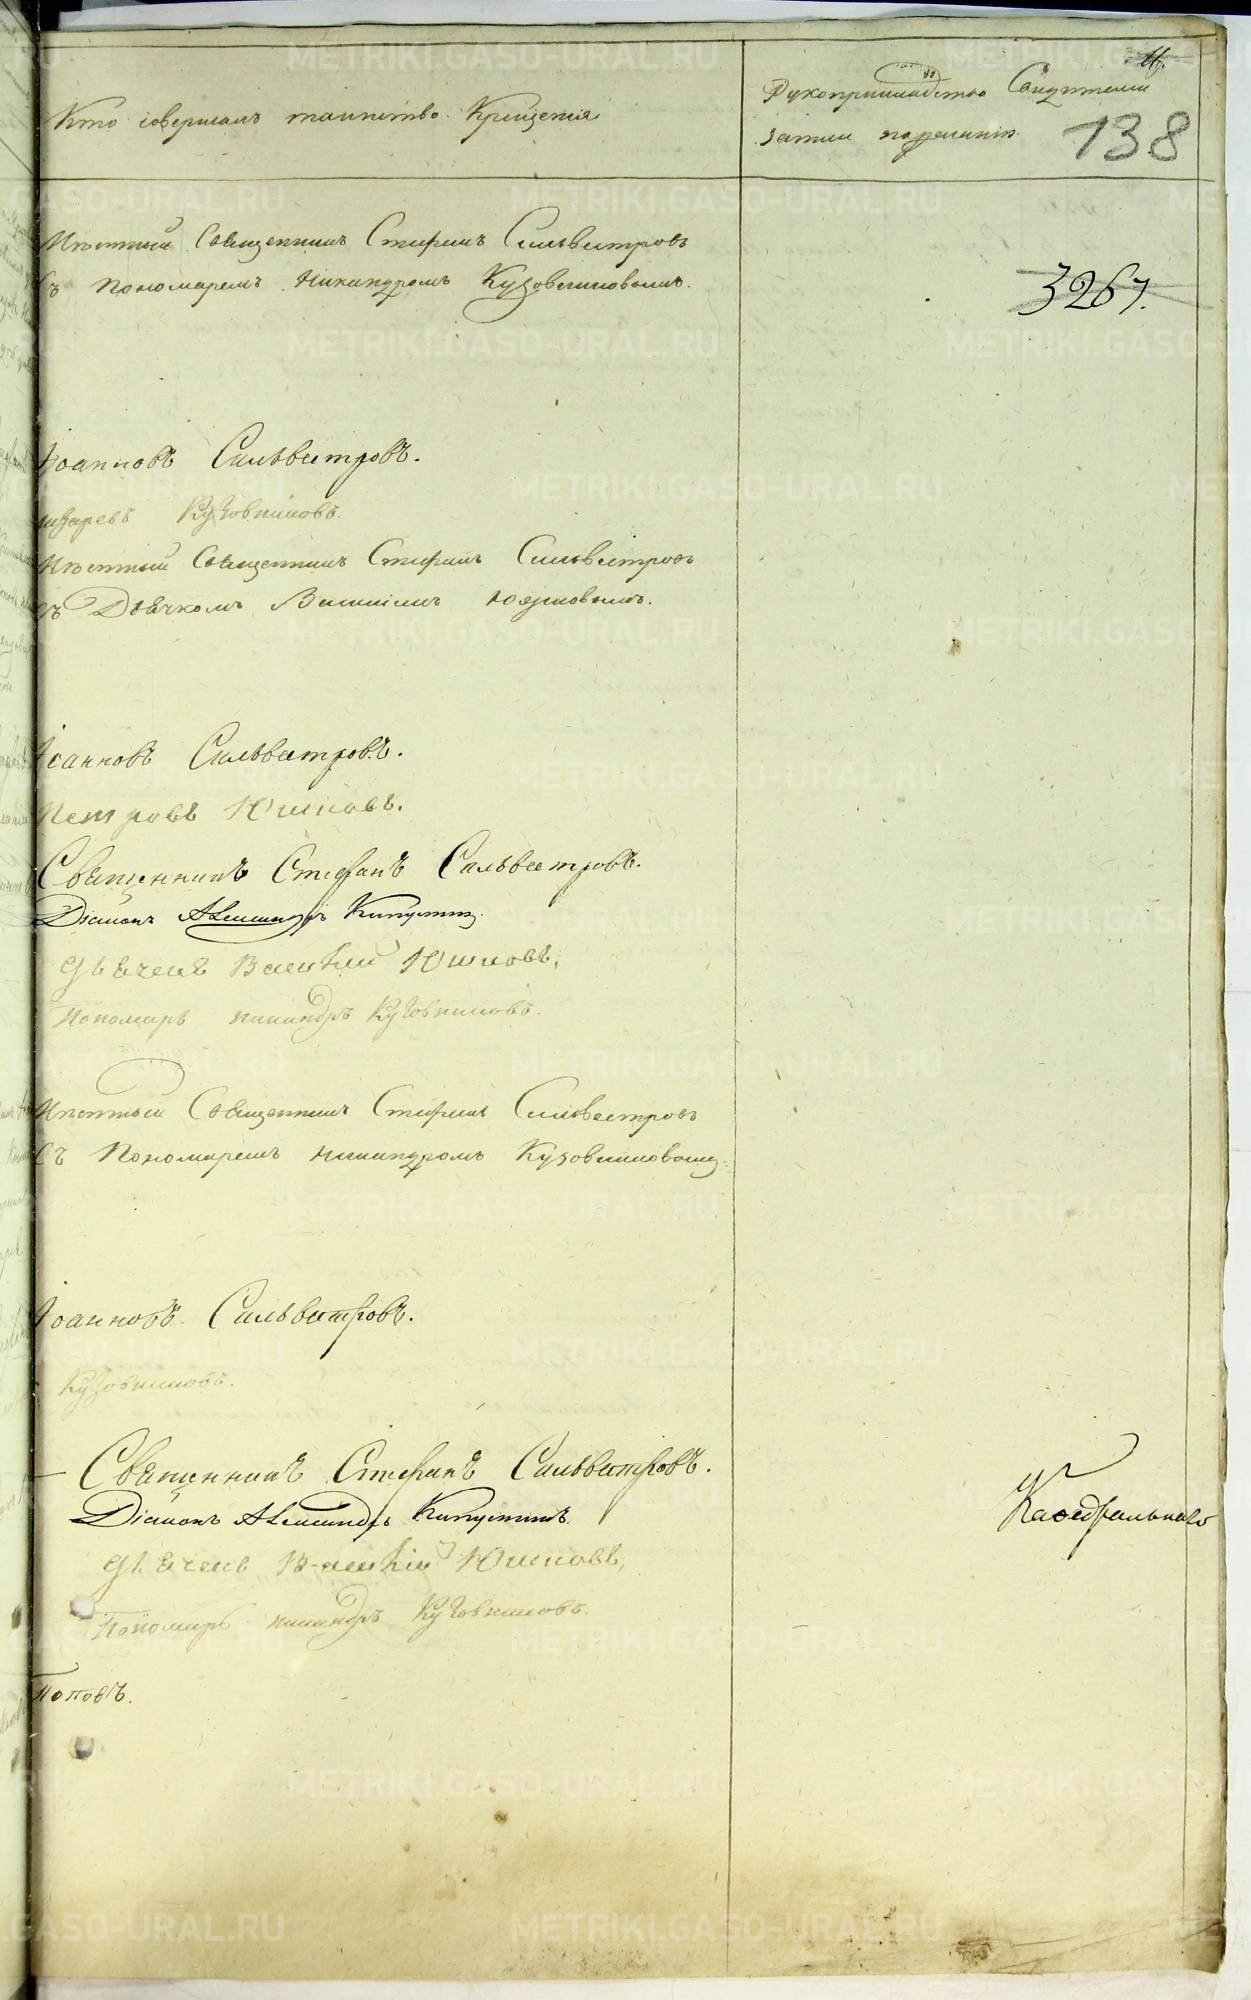 Кто совершалъ таинство Крещенія
Рукоприкладство Свидѣтелей
записи по желанію.
138
Мѣстный Священникъ Стефанъ Сильвестровъ
съ Пономаремъ Никандромъ Кузовниковымъ.
3267.
Іоанновъ Сильвестровъ.
Кузовниковъ.
Мѣстный Священникъ Стефанъ Сильвестровъ
съ Дьячкомъ Василіемъ Юшковымъ.
Іоанновъ Сильвестровъ.
Петровъ Юшковъ.
Священникъ Стефанъ Сильвестровъ.
Діаконъ Александръ Капустинъ.
Дьячекъ Василій Юшковъ,
Пономарь Никандръ Кузовниковъ.
Мѣстный Священникъ Стефанъ Сильвестровъ
съ Пономаремъ Никандромъ Кузовниковымъ
Іоанновъ Сильвестровъ.
Кузовниковъ.
Священникъ Стефанъ Сильвестровъ.
Кафедральнаго
Діаконъ Александръ Капустинъ.
Дьячекъ Василій Юшковъ,
Пономарь Никандръ Кузовниковъ.
Поповъ.